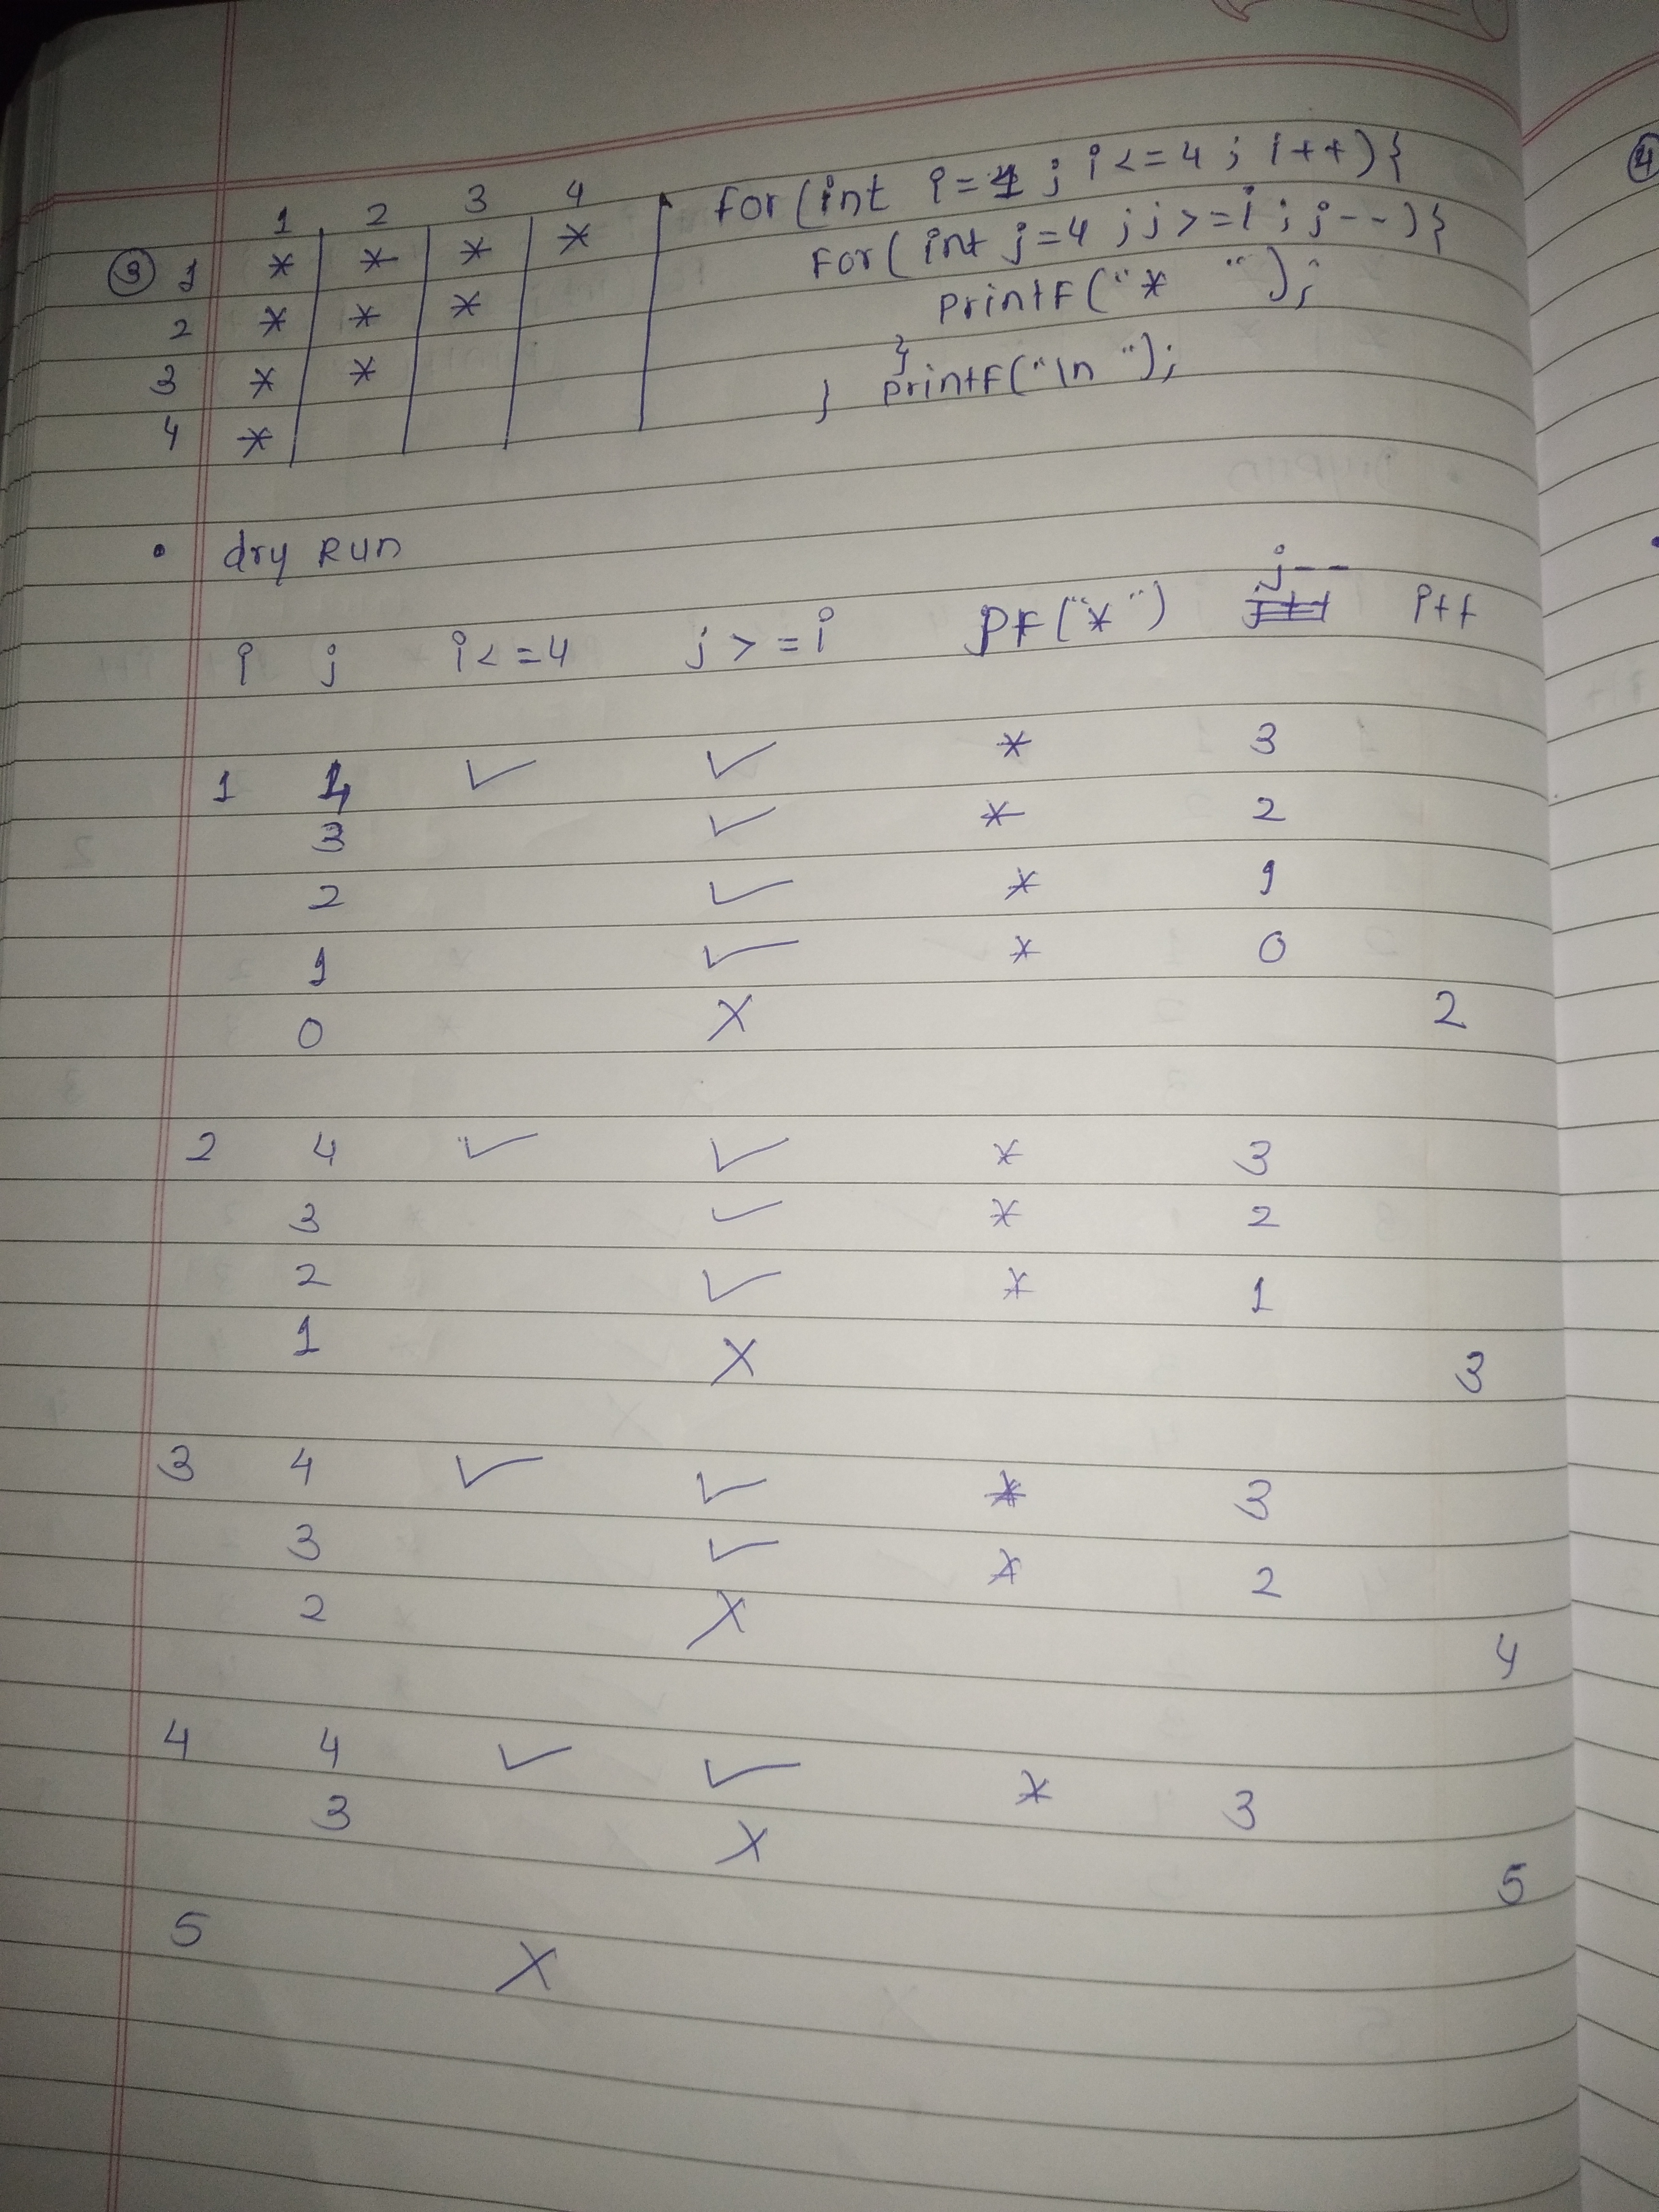 1 2 3 4
③ 1 * * * *
2 * * *
3 * *
4 *
for (int i=1 ; i<=4 ; i++){
for( int j=4 ; j>=i ; j--){
printf("* ");
}
} printf("\n ");
• dry Run
i j i<=4 j>=i PF("*") j-- i++
1 4 ✓ ✓ * 3
3 ✓ * 2
2 ✓ * 1
1 ✓ * 0
0 X 2
2 4 ✓ ✓ * 3
3 ✓ * 2
2 ✓ * 1
1 X 3
3 4 ✓ ✓ * 3
3 ✓ * 2
2 X 4
4 4 ✓ ✓ * 3
3 X 5
5 X
④